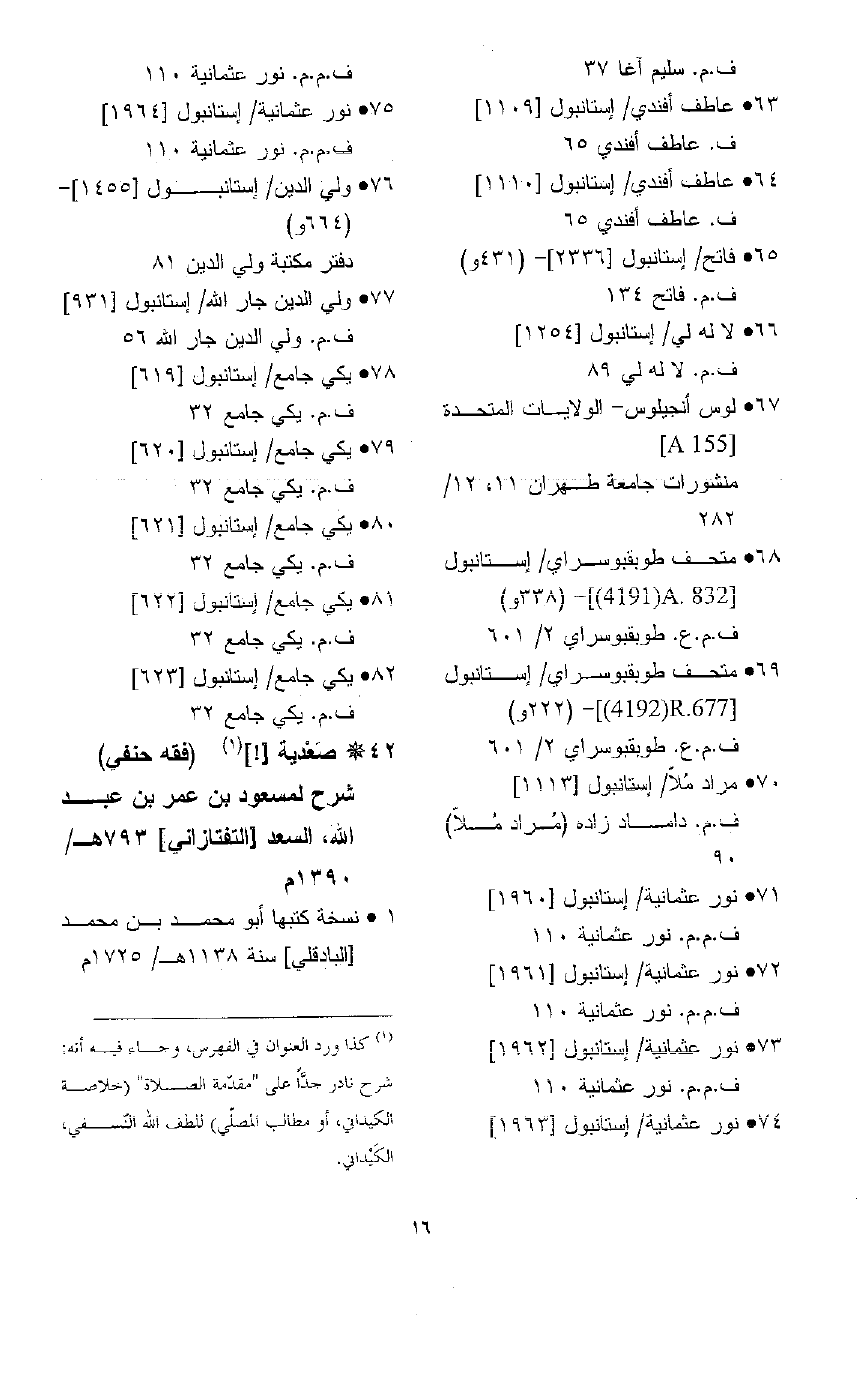 ف.م. سليم آغا ٣٧
٦٣• عاطف أفندي/ إستانبول [١١٠٩]
ف. عاطف أفندي ٦٥
٦٤• عاطف أفندي/ إستانبول [١١١٠]
ف. عاطف أفندي ٦٥
٦٥• فاتح/ إستانبول [٢٣٣٦]- (٤٣١و)
ف.م. فاتح ١٣٤
٦٦• لا له لي/ إستانبول [١٢٥٤]
ف.م. لا له لي ٨٩
٦٧• لوس أنجيلوس- الولايات المتحدة
[A 155]
منشورات جامعة طهران ١١، ١٢/
٢٨٢
٦٨• متحف طوبقبوسراي/ إستانبول
[A. 832(4191)]- (٣٣٨و)
ف.م.ع. طوبقبوسراي ٢/ ٦٠١
٦٩• متحف طوبقبوسراي/ إستانبول
[R.677(4192)]- (٢٢٢و)
ف.م.ع. طوبقبوسراي ٢/ ٦٠١
٧٠• مراد مُلاّ/ إستانبول [١١١٣]
ف.م. داماد زاده (مُراد مُلاّ)
٩٠
٧١• نور عثمانية/ إستانبول [١٩٦٠]
ف.م.م. نور عثمانية ١١٠
٧٢• نور عثمانية/ إستانبول [١٩٦١]
ف.م.م. نور عثمانية ١١٠
٧٣• نور عثمانية/ إستانبول [١٩٦٢]
ف.م.م. نور عثمانية ١١٠
٧٤• نور عثمانية/ إستانبول [١٩٦٣]
ف.م.م. نور عثمانية ١١٠
٧٥• نور عثمانية/ إستانبول [١٩٦٤]
ف.م.م. نور عثمانية ١١٠
٧٦• ولي الدين/ إستانبول [١٤٥٥]-
(٦٦٤و)
دفتر مكتبة ولي الدين ٨١
٧٧• ولي الدين جار الله/ إستانبول [٩٣١]
ف.م. ولي الدين جار الله ٥٦
٧٨• يكي جامع/ إستانبول [٦١٩]
ف.م. يكي جامع ٣٢
٧٩• يكي جامع/ إستانبول [٦٢٠]
ف.م. يكي جامع ٣٢
٨٠• يكي جامع/ إستانبول [٦٢١]
ف.م. يكي جامع ٣٢
٨١• يكي جامع/ إستانبول [٦٢٢]
ف.م. يكي جامع ٣٢
٨٢• يكي جامع/ إستانبول [٦٢٣]
ف.م. يكي جامع ٣٢
٤٢❋ صَعْدية [!](١) (فقه حنفي)
شرح لمسعود بن عمر بن عبد
الله، السعد [التفتازاني] ٧٩٣هـ/
١٣٩٠م
١ • نسخة كتبها أبو محمد بن محمد
[البادقلي] سنة ١١٣٨هـ/ ١٧٢٥م
(١) كذا ورد العنوان في الفهرس، وجاء فيه أنه:
شرح نادر جدًّا على "مقدّمة الصلاة" (خلاصة
الكيداني، أو مطالب المصلّي) للطف الله النّسفي،
الكَيْداني.
١٦